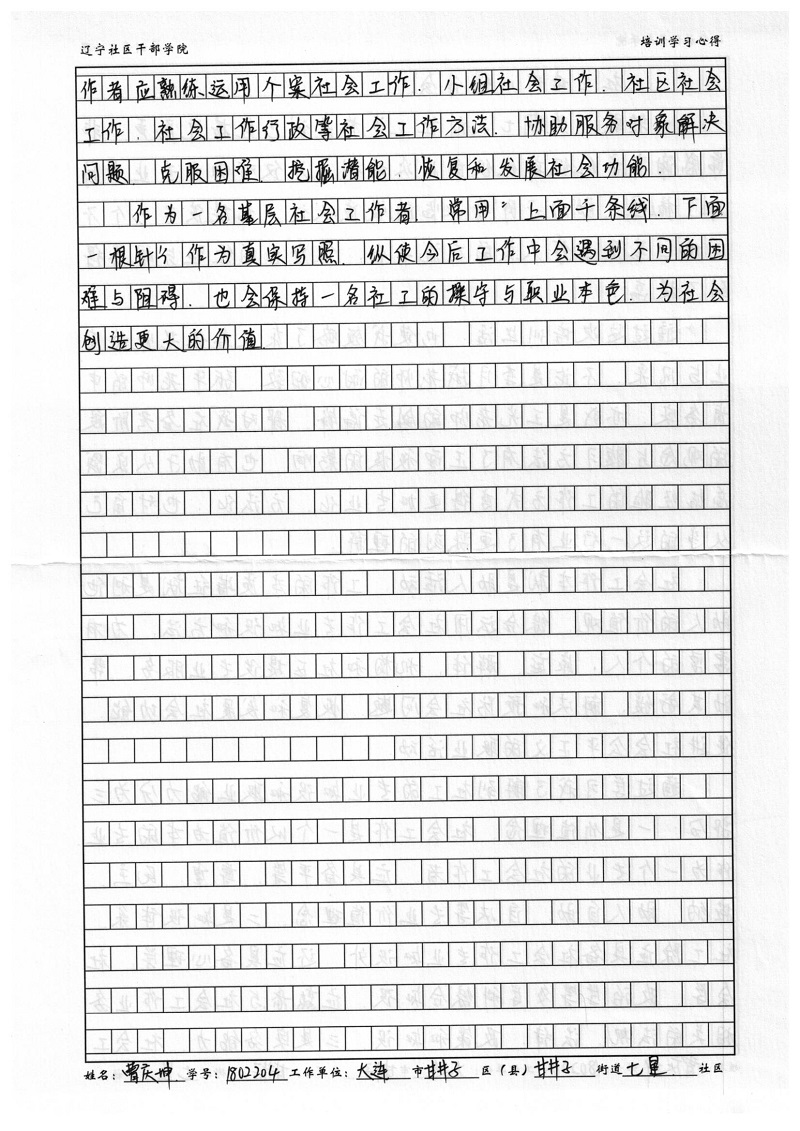 辽宁社区干部学院 培训学习心得
作者应熟练运用个案社会工作、小组社会工作、社区社会
工作、社会工作行政等社会工作方法、协助服务对象解决
问题、克服困难、挖掘潜能、恢复和发展社会功能
作为一名基层社会工作者、常用“上面千条线、下面
一根针”作为真实写照、纵使今后工作中会遇到不同的困
难与阻碍、也会保持一名社工的操守与职业本色、为社会
创造更大的价值
姓名：曹庆坤 学号：1802204 工作单位：大连 市 甘井子 区（县）甘井子 街道 七星 社区